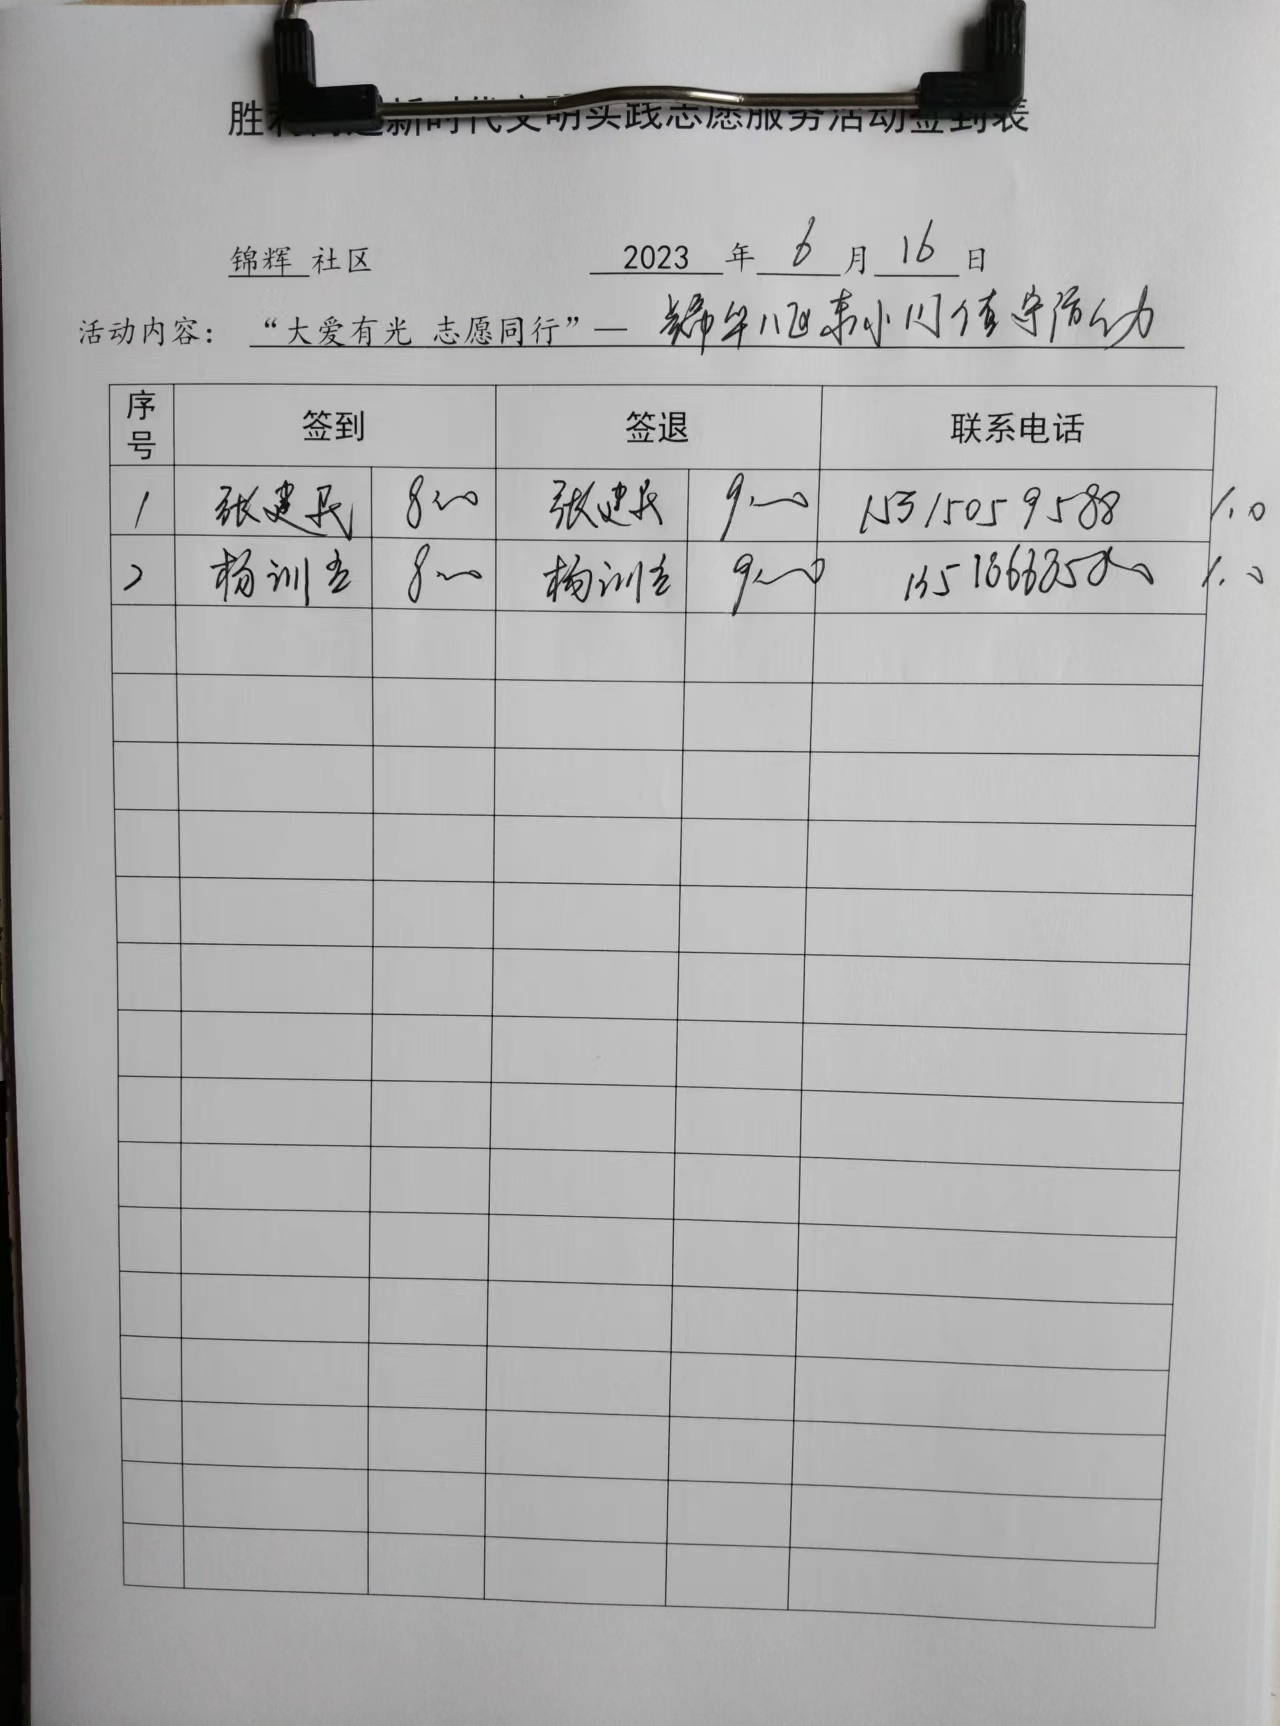 胜利街道新时代文明实践志愿服务活动签到表
锦辉 社区 2023 年 6 月 16 日
活动内容： “大爱有光 志愿同行”— 锦华八区东小门值守活动
序号 签到 签退 联系电话
1 张建民 8:00 张建民 9:00 15315059588 1.0
2 杨训吉 8:00 杨训吉 9:00 1.0